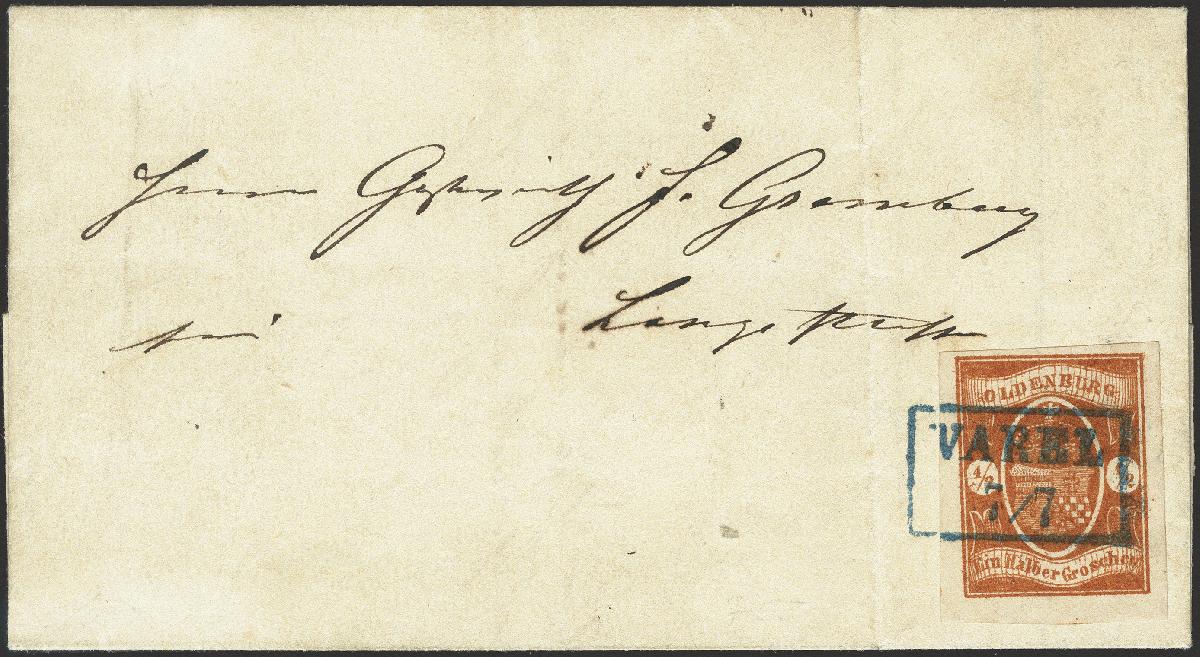 Herrn Gastwirth J. Gramberg
Langestrasse
OLDENBURG
VAREL
1/2 1/2
7/7
Ein Halber Groschen